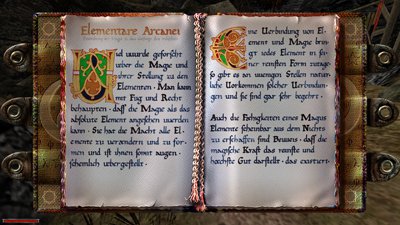 Elementare Arcanei
Viel wurde geforscht
ueber die Magie und
ihrer Stellung zu den
Elementen. Man kann
mit Fug und Recht
behaupten, daß die Magie als das
absolute Element angesehen werden
kann. Sie hat die Macht alle El-
emente zu veraendern und zu for-
men und ist ihnen somit augen-
scheinlich uebergestellt.
Eine Verbindung von El-
ement und Magie bring-
t jedes Element in sein-
er reinsten Form zutage
so gibt es an wenigen Stellen natur-
liche Vorkommen solcher Verbindun-
gen und sie sind gar sehr begehrt.
Auch die Faehigkeiten eines Magus
Elemente scheinbar aus dem Nichts
zu erschaffen sind Beweis, daß die
magische Kraft das reinste und
hoechste Gut darstellt, das existiert.